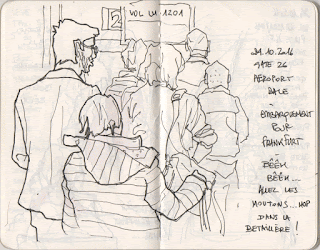 2
VOL LH-1201
21.10.2016
GATE 26
AÉROPORT
BALE
-
EMBARQUEMENT
POUR
FRANKFURT
-
BÊÊH
BÊÊH...
ALLEZ LES
MOUTONS... HOP
DANS LA
BETAILLÈRE !